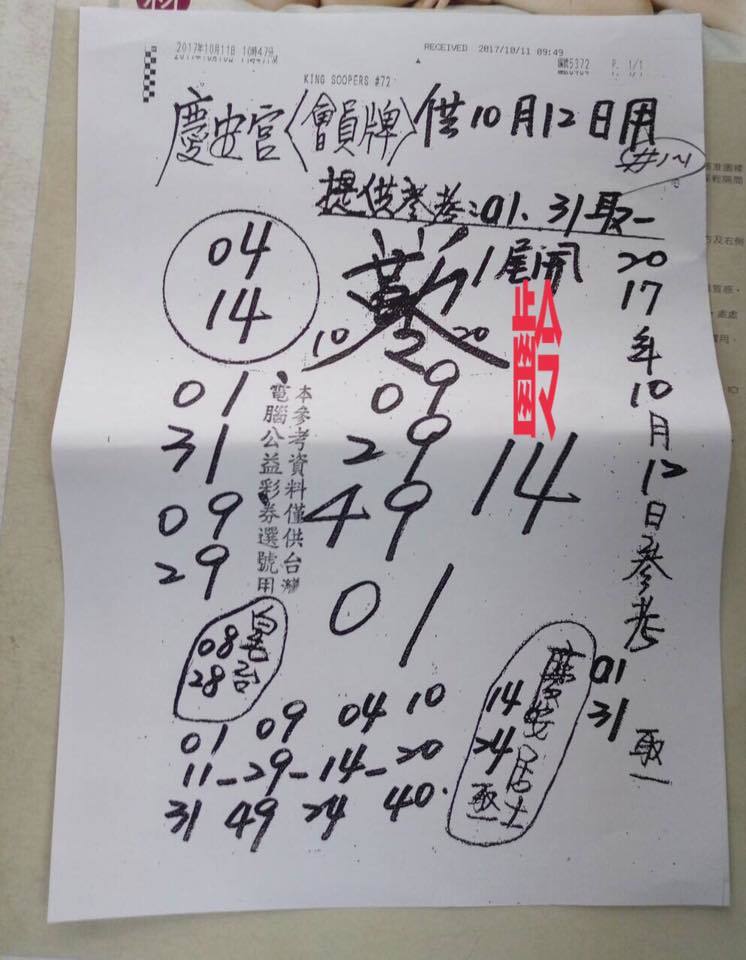 2017年10月11日 10時47分
RECEIVED 2017/10/11 09:49
5372 P. 1/1
KING SOOPERS #72
慶安宮〈會員牌〉供10月12日用
提供參考:01.31取一
04
14
1尾開
10 20
齡
14
2017年10月12日參考
01
31
取一
01
31
09
29
本參考資料僅供台灣
電腦公益彩券選號用
09
29
49
01
08
28
慶安居士
14
24
取一
01 09 04 10
11-29-14-20
31 49 24 40.